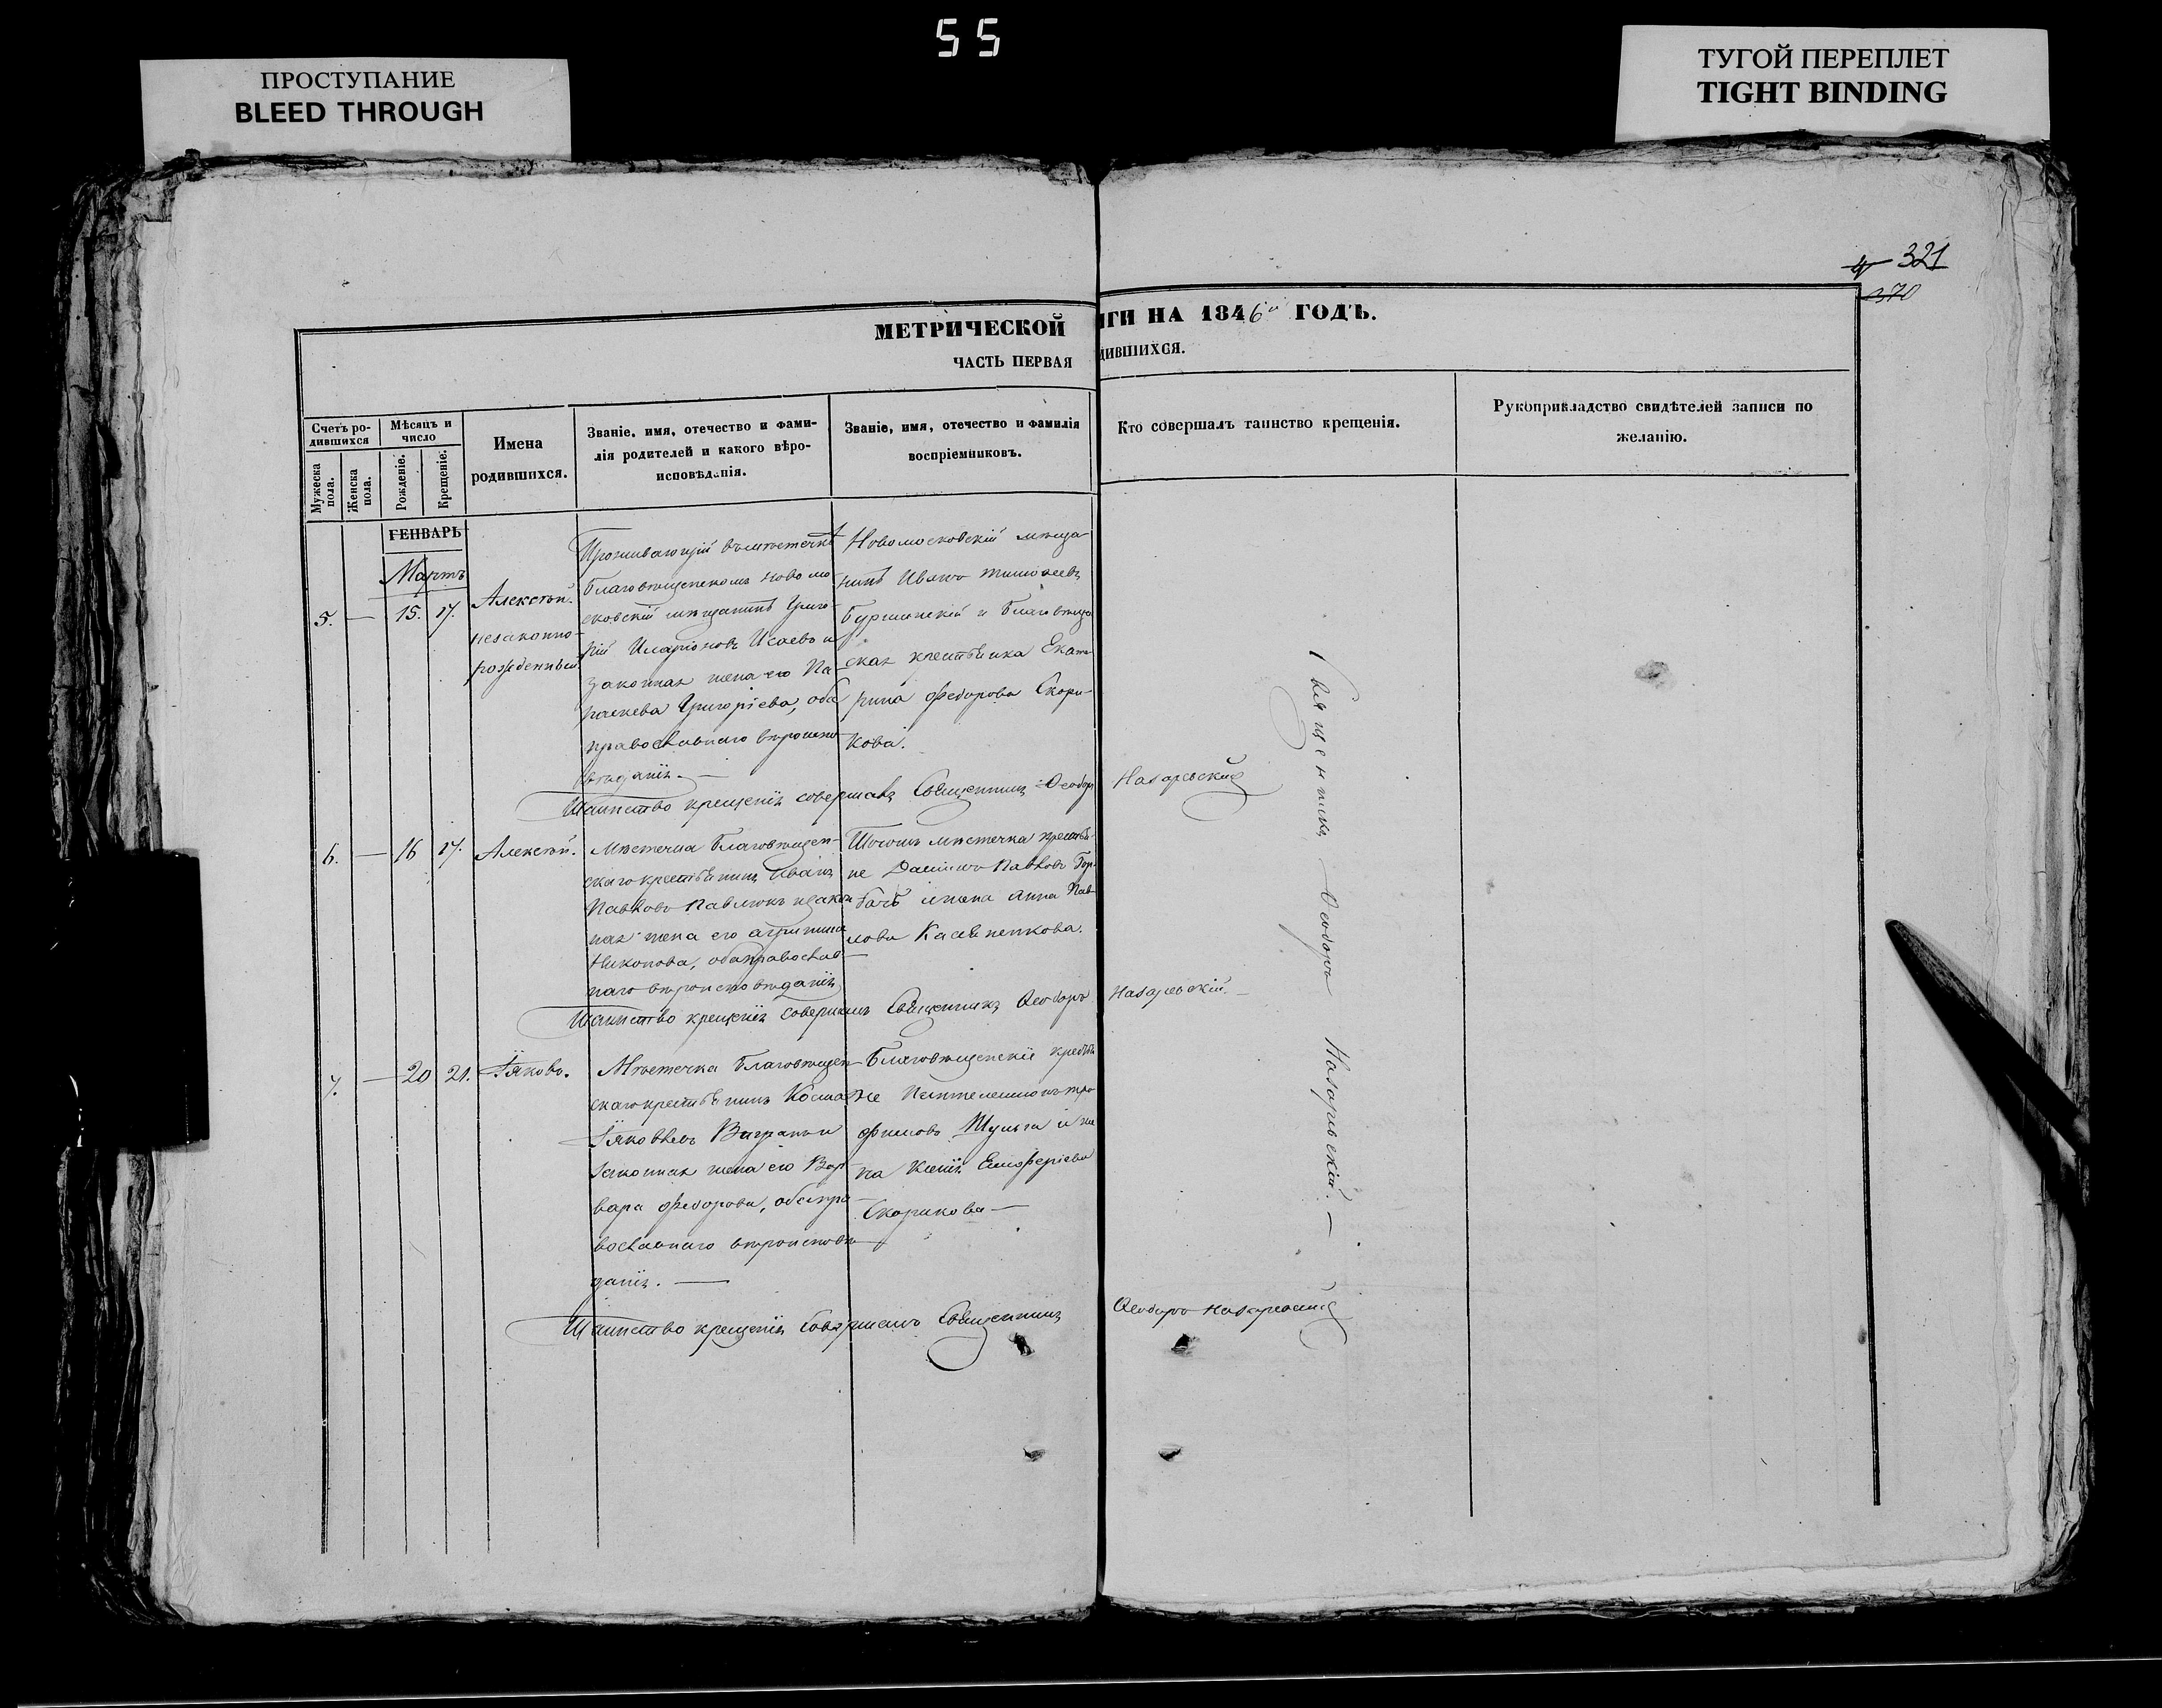 55
ПРОСТУПАНИЕ
BLEED THROUGH
ТУГОЙ ПЕРЕПЛЕТ
TIGHT BINDING
321
370
МЕТРИЧЕСКОЙ
ГИ НА 1846й ГОДЪ.
ЧАСТЬ ПЕРВАЯ
ДИВШИХСЯ.
Счетъ ро-
дившихся
Мужеска
пола.
Женска
пола.
Мѣсяцъ и
число
Рожденіе.
Крещеніе.
Имена
родившихся.
Званіе, имя, отечество и фами-
лія родителей и какого вѣро-
исповѣданія.
Званіе, имя, отечество и фамилія
воспріемниковъ.
Кто совершалъ таинство крещенія.
Рукоприкладство свидѣтелей записи по
желанію.
ГЕНВАРЬ
Мартъ
5. — 15. 17.
Алексѣй.
незаконно-
рожденный
Проживающій въ мѣстечкѣ
Благовѣщенскомъ новомо-
сковскій мѣщанинъ Григо-
рій Иларіоновъ Исаевъ и
законная жена его Па-
раскева Григоріева, оба
православнаго вѣроиспо-
вѣданія. —
Новомосковскій мѣща-
нинъ Иванъ Тимофеевъ
и Благовѣще
ская крестьянка Екате
рина Федорова Скори-
кова.
Таинство крещенія совершалъ Священникъ Ѳеодоръ
Назаревскій
6. — 16 17. Алексѣй.
Мѣстечка Благовѣщен-
скаго крестьянинъ Иванъ
Павловъ Павлюкъ и закон
ная жена его Агрипина
Никонова, оба православ-
наго вѣроисповѣданія
Тогожъ мѣстечка крестья-
не Данило Павловъ Гор-
бачъ и жена Анна Пав-
лова
Таинство крещенія совершалъ Священникъ Ѳеодоръ
Назаревскій. —
7. — 20 21. Іяковъ.
Мѣстечка Благовѣщен-
скаго крестьянинъ Косма
Іяковлевъ и
законная жена его Вар-
вара Федорова, оба пра-
вославнаго вѣроисповѣ-
данія. —
Благовѣщенскіе крестья
не Пантелеимонъ Тро
фимовъ Шульга и же
на Ксенія Елеоферіева
Скорикова —
Таинство крещенія совершалъ Священникъ
Ѳеодоръ Назаревскій
Священникъ Ѳеодоръ Назаревскій. —